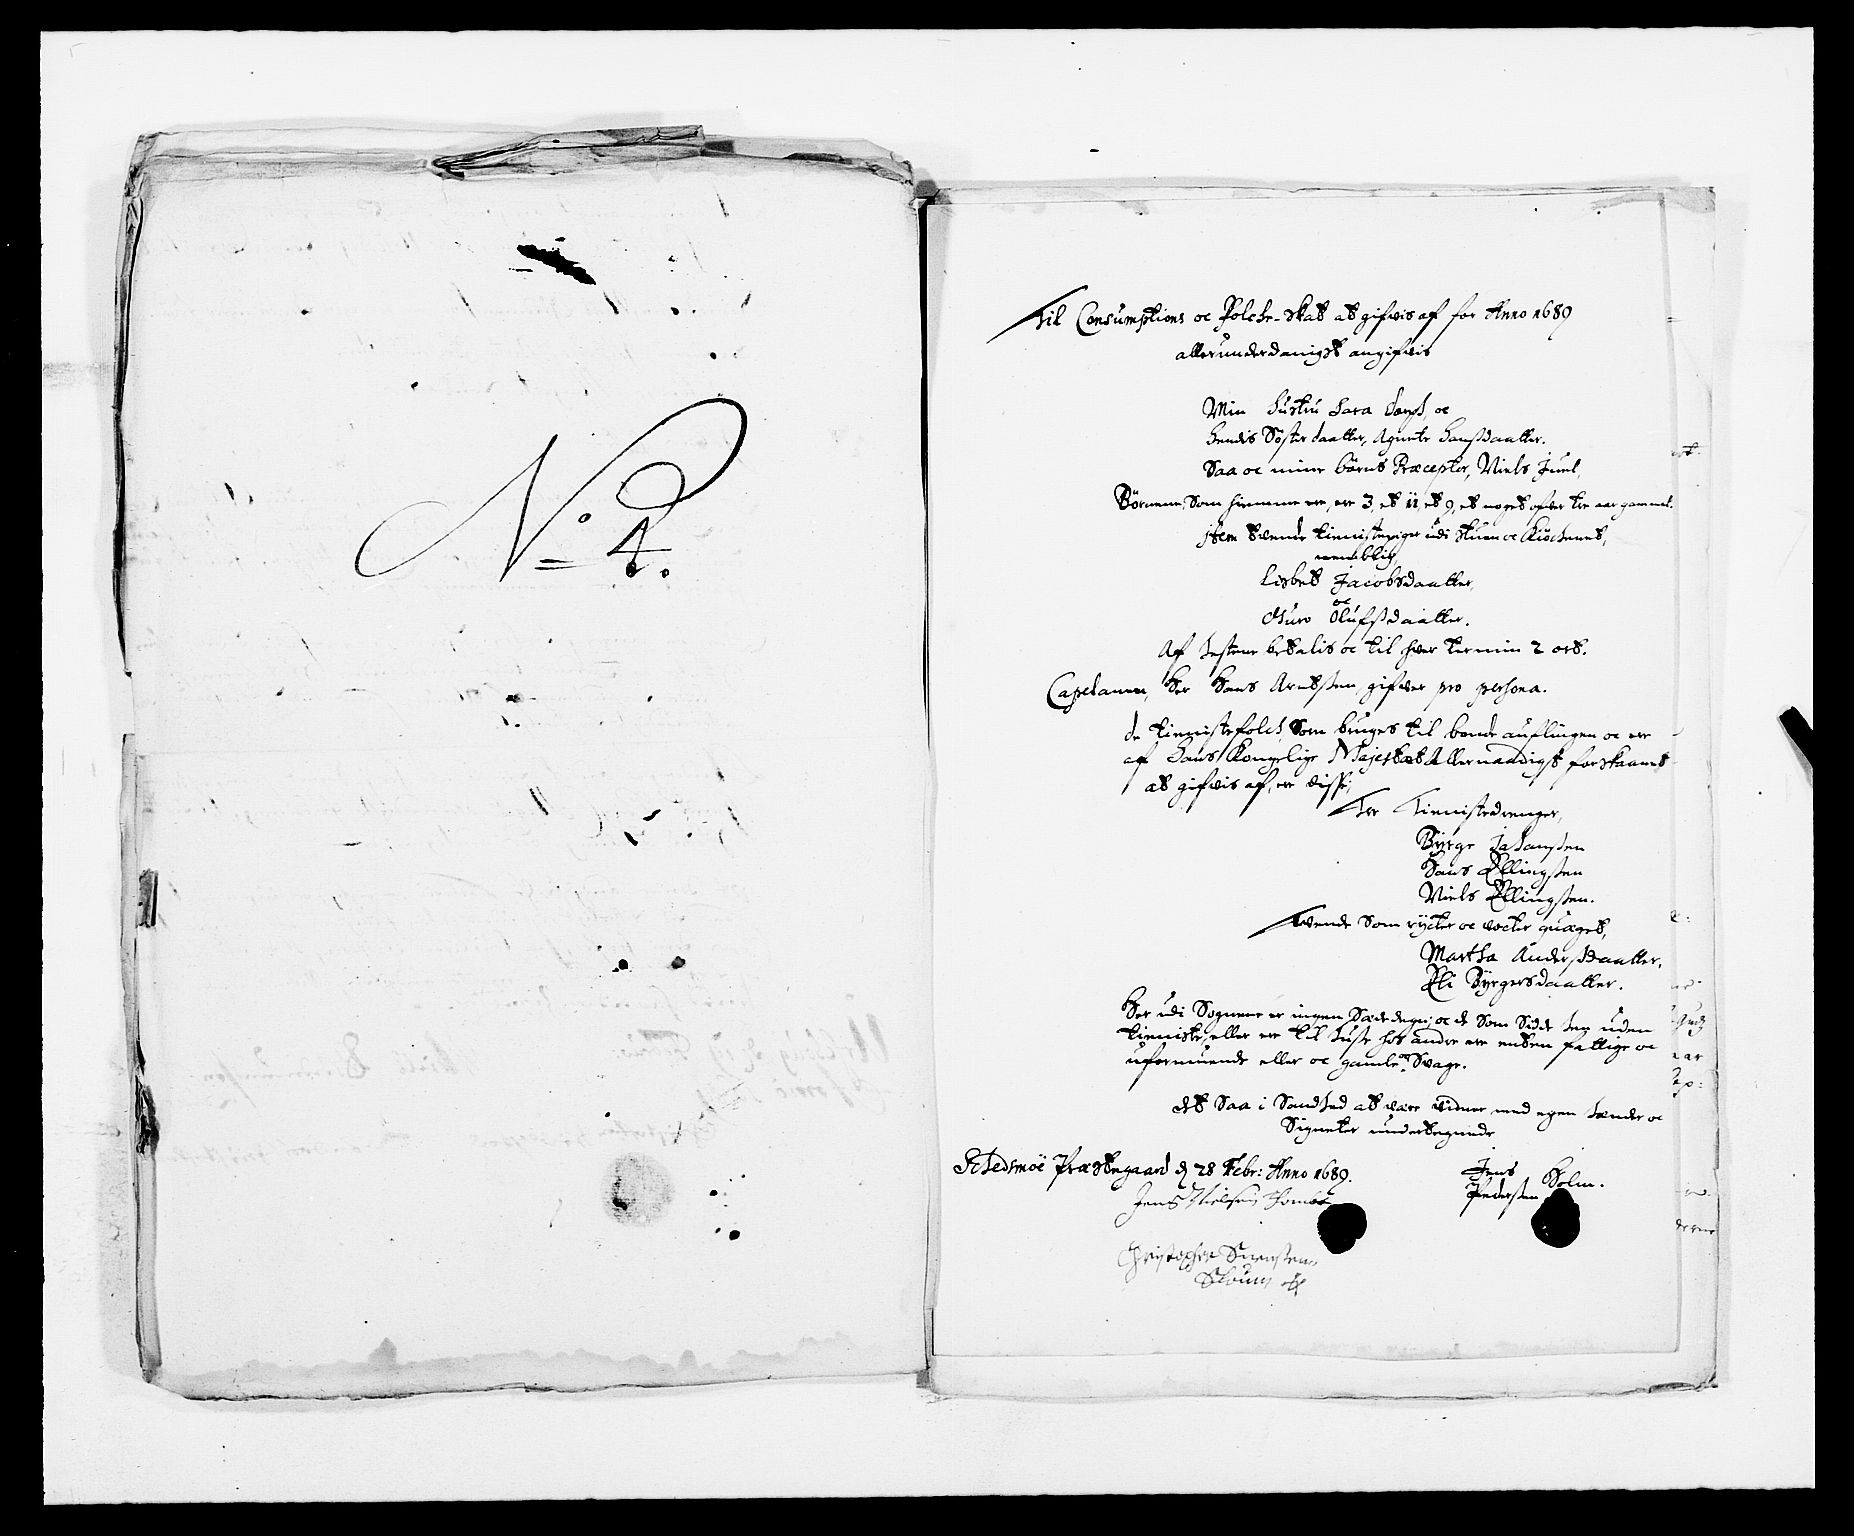 No 4.
Til Consumptions oc Folche-Skat at gifvis af for Anno 1689
allerunderdanigst angifvis
Min Hustru Sara
hendis Søster daatter, Agnete Hansdaatter.
Saa oc mine börns Præceptor, Niels Juul,
Börnene, Som hiemme ere, ere 3, et 11, et 9, et noget ofver tre aar gammel.
Item tvende tienistepiger udi stuen oc Kiöchenet,
nemblig,
Lisbet Jacobsdaatter,
oc
Guro Olufsdaatter.
Af Hestene betalis oc til hver termin 2 ort.
Capelanen, Her Hans Arntsen, gifver pro persona.
de tienistefolch, Som bruges til bonde auflingen oc ere
af Hans Kongelige Majestæt Allernaadigst forskaanet
at gifvis af, ere disse,
Tre Tienistedrenger,
Byrge Johansen
Hans Ellingsen
Niels Ellingsen.
Tvende Som rycter oc vocter qvæget,
Martha Andersdaatter,
Eli Byrgersdaatter.
Her udi Sognene er ingen Sædedegn, oc de Som Sidde hen uden
tieniste, eller ere til huse hos andre ere enten fattige oc
uformuende eller oc gamle oc Svage.
det Saa i Sandhed at være vidner med egen hænder oc
Signeter undertegnede
Schedsmöe Præstegaard d 28 Febr: Anno 1689.
Jens
Pedersen Holm.
Jens Nielsen
Christopher Suensen